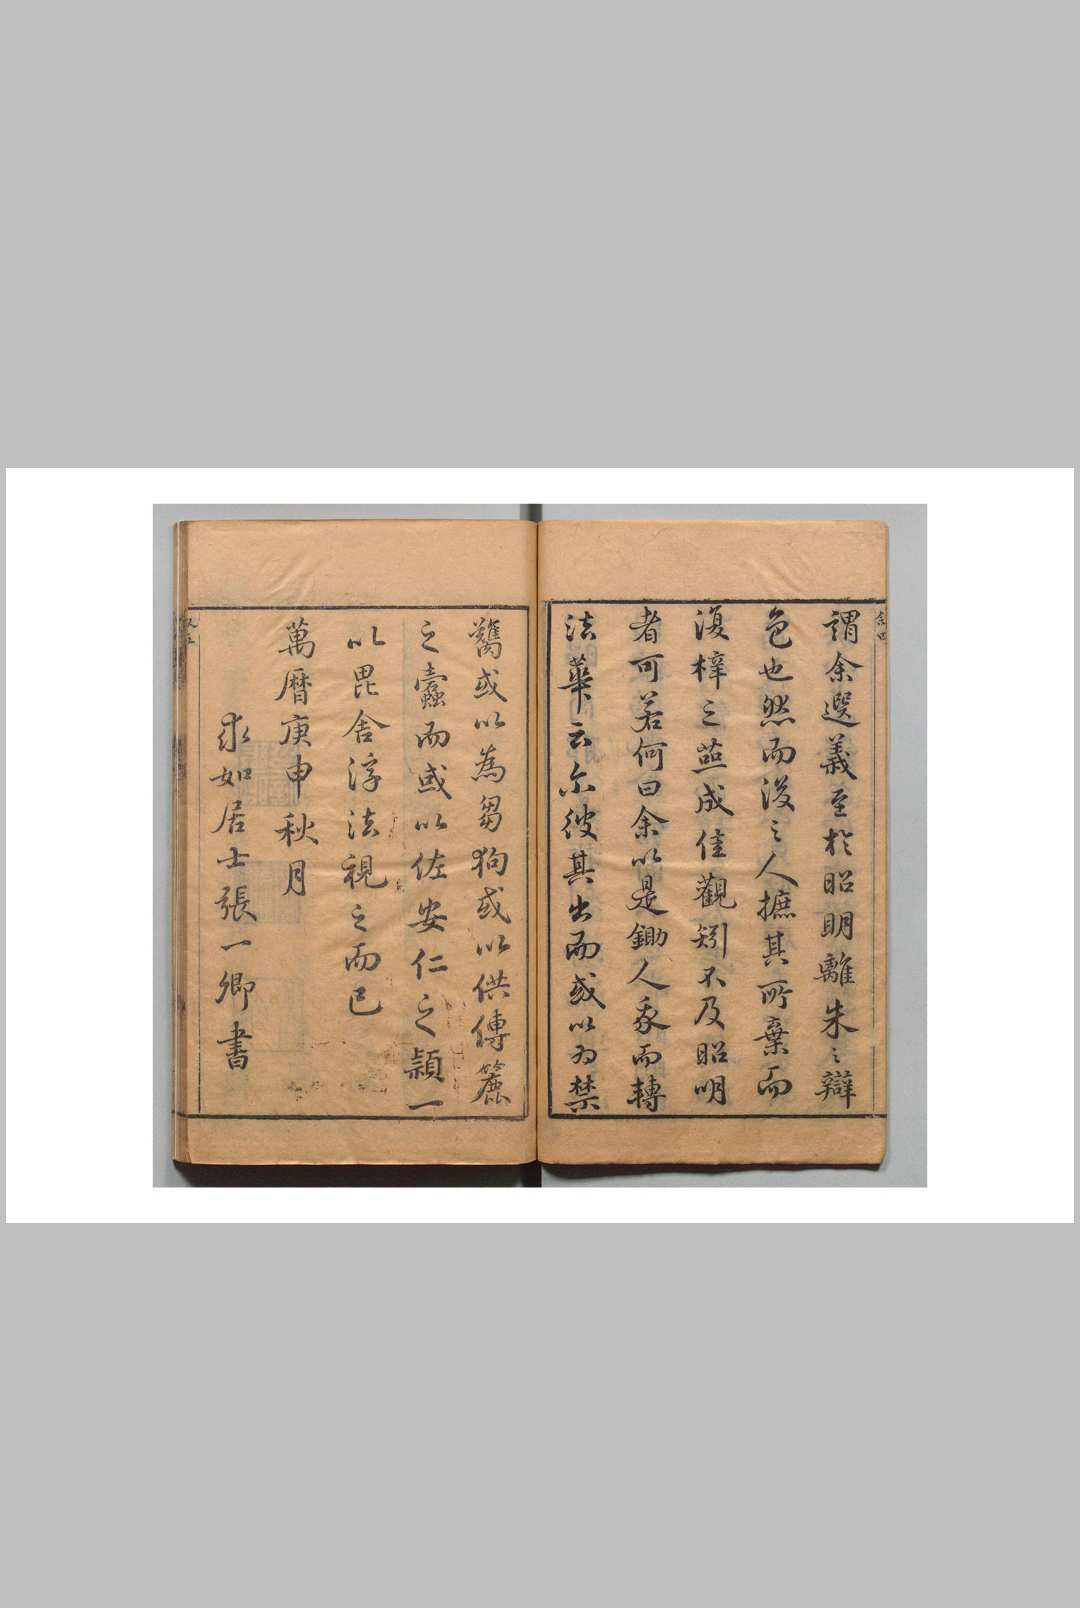 謂余選義至於昭明離朱之辯
色也然而後之人摭其所棄而
復梓之燕成佳觀矧不及昭明
者可若何曰余以是鋤人豕而轉
法華云尔彼其出而或以为禁
臠或以為芻狗或以供傳簏
之蠹而或以佐安仁之穎一
以毘舍浮法視之而已
萬曆庚申秋月
求如居士張一卿書